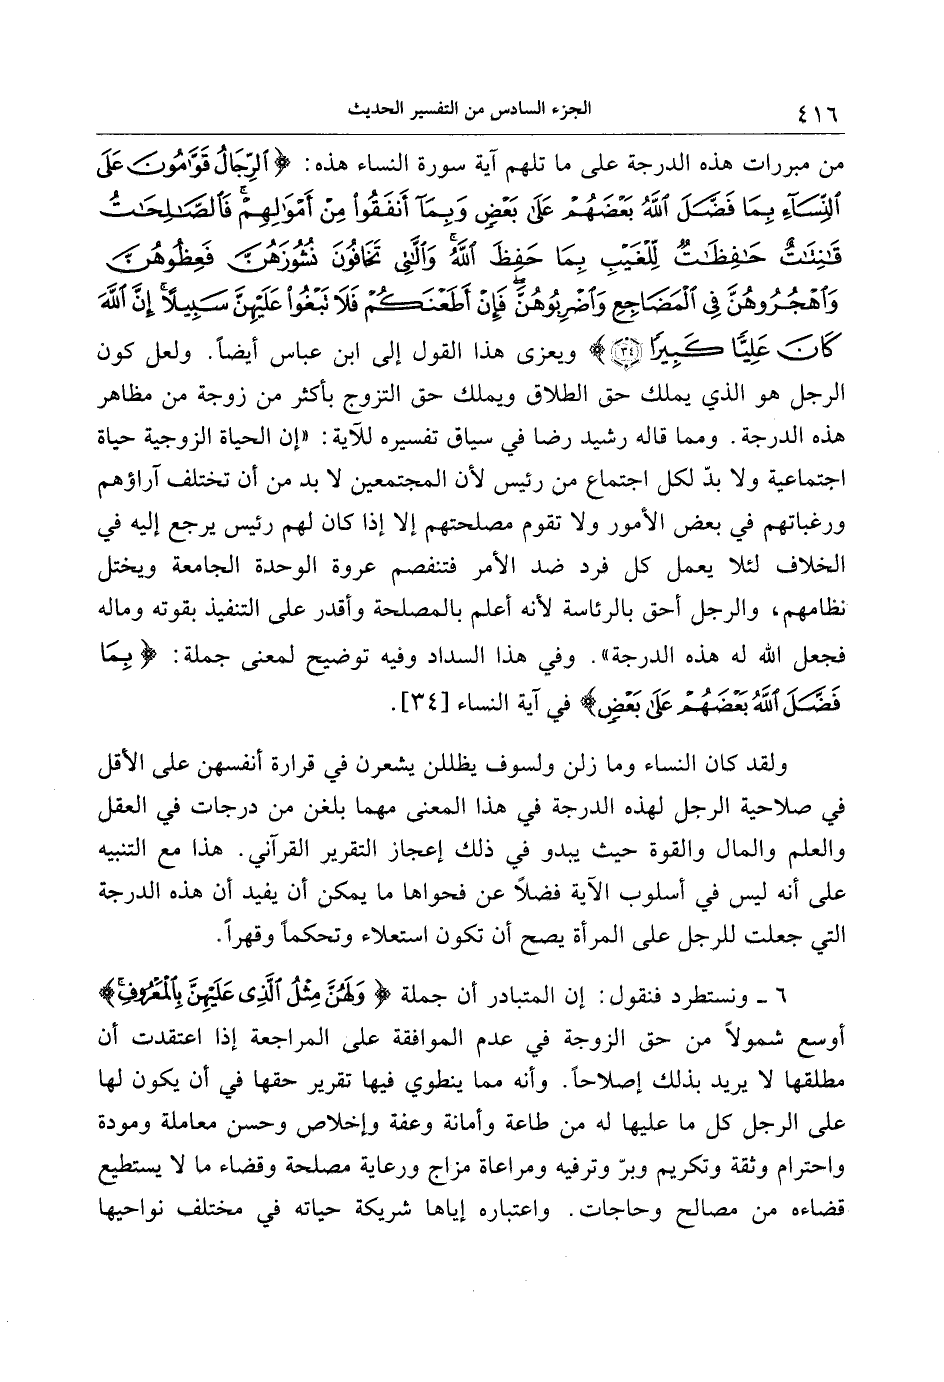 ٤١٦ الجزء السادس من التفسير الحديث
من مبررات هذه الدرجة على ما تلهم آية سورة النساء هذه: ﴿ ٱلرِّجَالُ قَوَّٰمُونَ عَلَى
ٱلنِّسَآءِ بِمَا فَضَّلَ ٱللَّهُ بَعۡضَهُمۡ عَلَىٰ بَعۡضٖ وَبِمَآ أَنفَقُواْ مِنۡ أَمۡوَٰلِهِمۡۚ فَٱلصَّٰلِحَٰتُ
قَٰنِتَٰتٌ حَٰفِظَٰتٞ لِّلۡغَيۡبِ بِمَا حَفِظَ ٱللَّهُۚ وَٱلَّٰتِي تَخَافُونَ نُشُوزَهُنَّ فَعِظُوهُنَّ
وَٱهۡجُرُوهُنَّ فِي ٱلۡمَضَاجِعِ وَٱضۡرِبُوهُنَّۖ فَإِنۡ أَطَعۡنَكُمۡ فَلَا تَبۡغُواْ عَلَيۡهِنَّ سَبِيلًاۗ إِنَّ ٱللَّهَ
كَانَ عَلِيّٗا كَبِيرٗا ٣٤ ﴾ ويعزى هذا القول إلى ابن عباس أيضاً. ولعل كون
الرجل هو الذي يملك حق الطلاق ويملك حق التزوج بأكثر من زوجة من مظاهر
هذه الدرجة. ومما قاله رشيد رضا في سياق تفسيره للآية: «إن الحياة الزوجية حياة
اجتماعية ولا بدّ لكل اجتماع من رئيس لأن المجتمعين لا بد من أن تختلف آراؤهم
ورغباتهم في بعض الأمور ولا تقوم مصلحتهم إلا إذا كان لهم رئيس يرجع إليه في
الخلاف لئلا يعمل كل فرد ضد الأمر فتنفصم عروة الوحدة الجامعة ويختل
نظامهم، والرجل أحق بالرئاسة لأنه أعلم بالمصلحة وأقدر على التنفيذ بقوته وماله
فجعل الله له هذه الدرجة». وفي هذا السداد وفيه توضيح لمعنى جملة: ﴿ بِمَا
فَضَّلَ ٱللَّهُ بَعۡضَهُمۡ عَلَىٰ بَعۡضٖ﴾ في آية النساء [٣٤].
ولقد كان النساء وما زلن ولسوف يظللن يشعرن في قرارة أنفسهن على الأقل
في صلاحية الرجل لهذه الدرجة في هذا المعنى مهما بلغن من درجات في العقل
والعلم والمال والقوة حيث يبدو في ذلك إعجاز التقرير القرآني. هذا مع التنبيه
على أنه ليس في أسلوب الآية فضلاً عن فحواها ما يمكن أن يفيد أن هذه الدرجة
التي جعلت للرجل على المرأة يصح أن تكون استعلاء وتحكماً وقهراً.
٦ ـ ونستطرد فنقول: إن المتبادر أن جملة ﴿ وَلَهُنَّ مِثۡلُ ٱلَّذِي عَلَيۡهِنَّ بِٱلۡمَعۡرُوفِۚ﴾
أوسع شمولاً من حق الزوجة في عدم الموافقة على المراجعة إذا اعتقدت أن
مطلقها لا يريد بذلك إصلاحاً. وأنه مما ينطوي فيها تقرير حقها في أن يكون لها
على الرجل كل ما عليها له من طاعة وأمانة وعفة وإخلاص وحسن معاملة ومودة
واحترام وثقة وتكريم وبرّ وترفيه ومراعاة مزاج ورعاية مصلحة وقضاء ما لا يستطيع
قضاءه من مصالح وحاجات. واعتباره إياها شريكة حياته في مختلف نواحيها